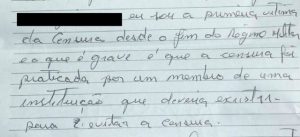 eu sou a primeira vítima
da Censura desde o fim do Regime Militar
e o que é grave é que a censura foi
praticada por um membro de uma
instituição que deveria existir
para evitar a censura.